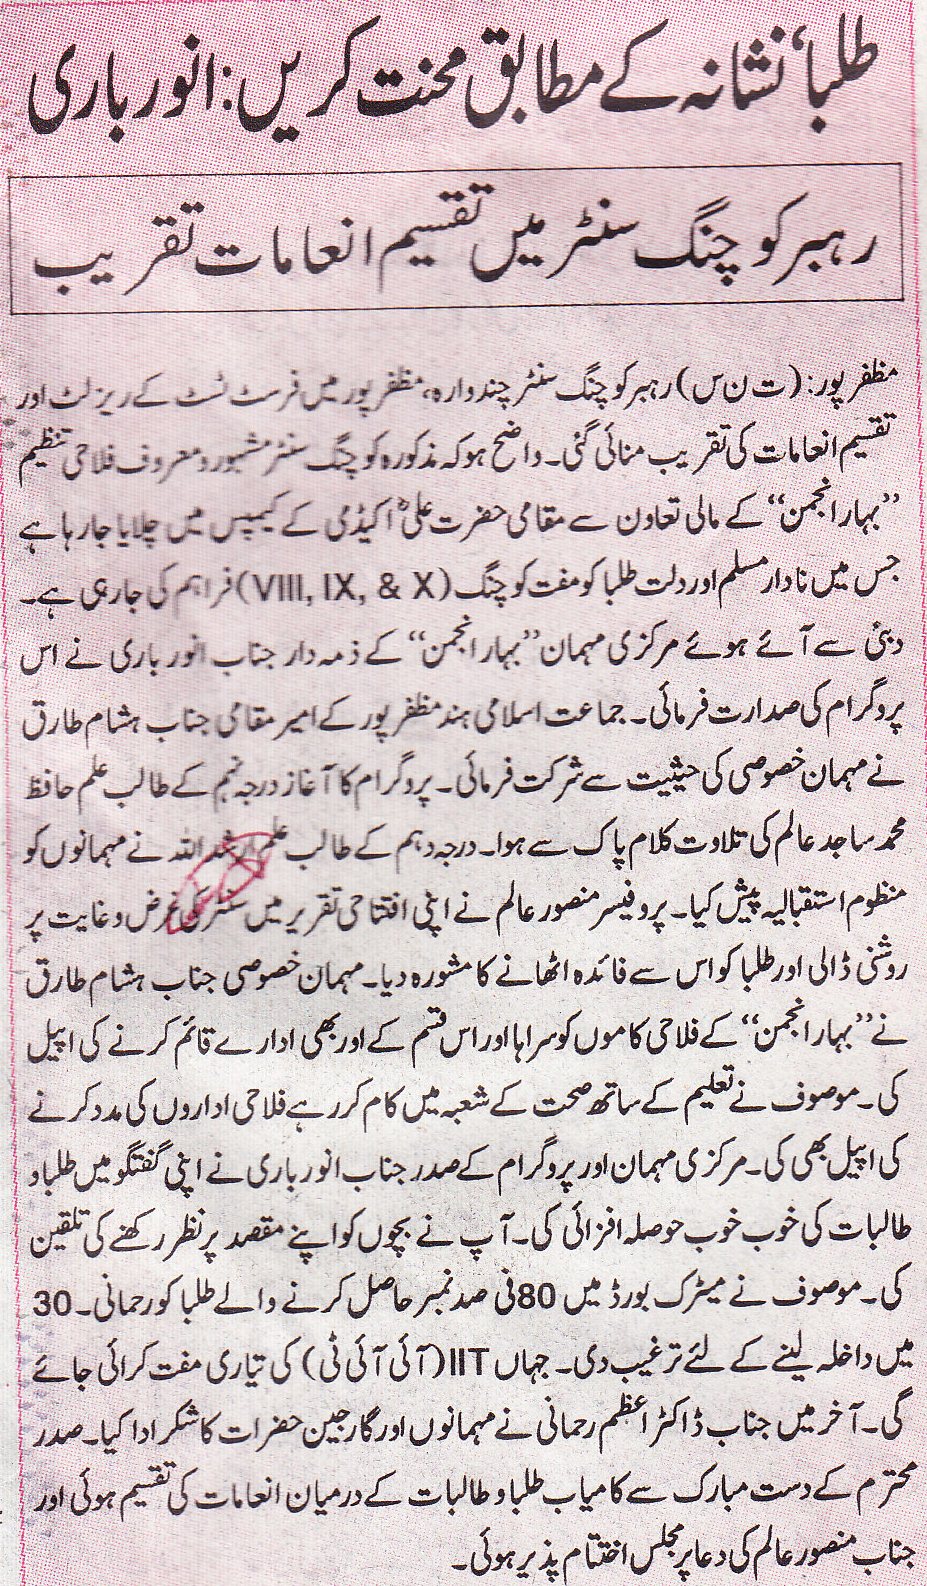 طلبا، نشانہ کے مطابق محنت کریں: انور باری
رہبر کوچنگ سنٹر میں تقسیم انعامات تقریب
مظفر پور: (ت ن س) رہبر کوچنگ سنٹر چندوارہ، مظفر پور میں فرسٹ ٹسٹ کے ریزلٹ اور
تقسیم انعامات کی تقریب منائی گئی۔ واضح ہو کہ مذکورہ کوچنگ سنٹر مشہور و معروف فلاحی تنظیم
”بہار انجمن“ کے مالی تعاون سے مقامی حضرت علیؓ اکیڈمی کے کیمپس میں چلایا جا رہا ہے
جس میں نادار مسلم اور دلت طلبا کو مفت کوچنگ (VIII, IX, & X) فراہم کی جا رہی ہے۔
دبئی سے آئے ہوئے مرکزی مہمان ”بہار انجمن“ کے ذمہ دار جناب انور باری نے اس
پروگرام کی صدارت فرمائی۔ جماعت اسلامی ہند مظفر پور کے امیر مقامی جناب ہشام طارق
نے مہمان خصوصی کی حیثیت سے شرکت فرمائی۔ پروگرام کا آغاز درجہ نہم کے طالب علم حافظ
محمد ساجد عالم کی تلاوت کلام پاک سے ہوا۔ درجہ دہم کے طالب علم ارشد اللہ نے مہمانوں کو
منظوم استقبالیہ پیش کیا۔ پروفیسر منصور عالم نے اپنی افتتاحی تقریر میں سنٹر کی غرض و غایت پر
روشنی ڈالی اور طلبا کو اس سے فائدہ اٹھانے کا مشورہ دیا۔ مہمان خصوصی جناب ہشام طارق
نے ”بہار انجمن“ کے فلاحی کاموں کو سراہا اور اس قسم کے اور بھی ادارے قائم کرنے کی اپیل
کی۔ موصوف نے تعلیم کے ساتھ صحت کے شعبہ میں کام کر رہے فلاحی اداروں کی مدد کرنے
کی اپیل بھی کی۔ مرکزی مہمان اور پروگرام کے صدر جناب انور باری نے اپنی گفتگو میں طلبا و
طالبات کی خوب خوب حوصلہ افزائی کی۔ آپ نے بچوں کو اپنے مقصد پر نظر رکھنے کی تلقین
کی۔ موصوف نے میٹرک بورڈ میں 80 فی صد نمبر حاصل کرنے والے طلبا کو رحمانی۔ 30
میں داخلہ لینے کے لئے ترغیب دی۔ جہاں IIT (آئی آئی ٹی) کی تیاری مفت کرائی جائے
گی۔ آخر میں جناب ڈاکٹر اعظم رحمانی نے مہمانوں اور گارجین حضرات کا شکر ادا کیا۔ صدر
محترم کے دست مبارک سے کامیاب طلبا و طالبات کے درمیان انعامات کی تقسیم ہوئی اور
جناب منصور عالم کی دعا پر مجلس اختتام پذیر ہوئی۔